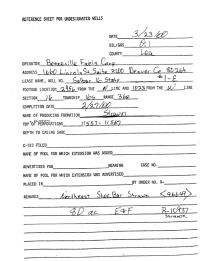 REFERENCE SHEET FOR UNDESIGNATED WELLS
DATE 3/23/00
OIL/GAS Oil
COUNTY Lea
OPERATOR Bonneville Fuels Corp
ADDRESS 1660 Lincoln St Suite 2200 Denver Co 80264
LEASE NAME, WELL NO. State #1-E
FOOTAGE LOCATION LINE AND 1023 FROM THE W LINE
SECTION 16 TOWNSHIP 16S RANGE 36E
COMPLETION DATE 2/27/00
NAME OF PRODUCING FORMATION Strawn
TOP OF PERFORATIONS
DEPTH TO CASING SHOE
C-123 FILED
NAME OF POOL FOR WHICH EXTENSION WAS ASKED
ADVERTISED FOR HEARING CASE NO.
NAME OF POOL FOR WHICH EXTENSION WAS ADVERTISED
PLACED IN BY ORDER NO. R-
REMARKS Northeast Shoe Bar Strawn
80 ac E&F
Strawn